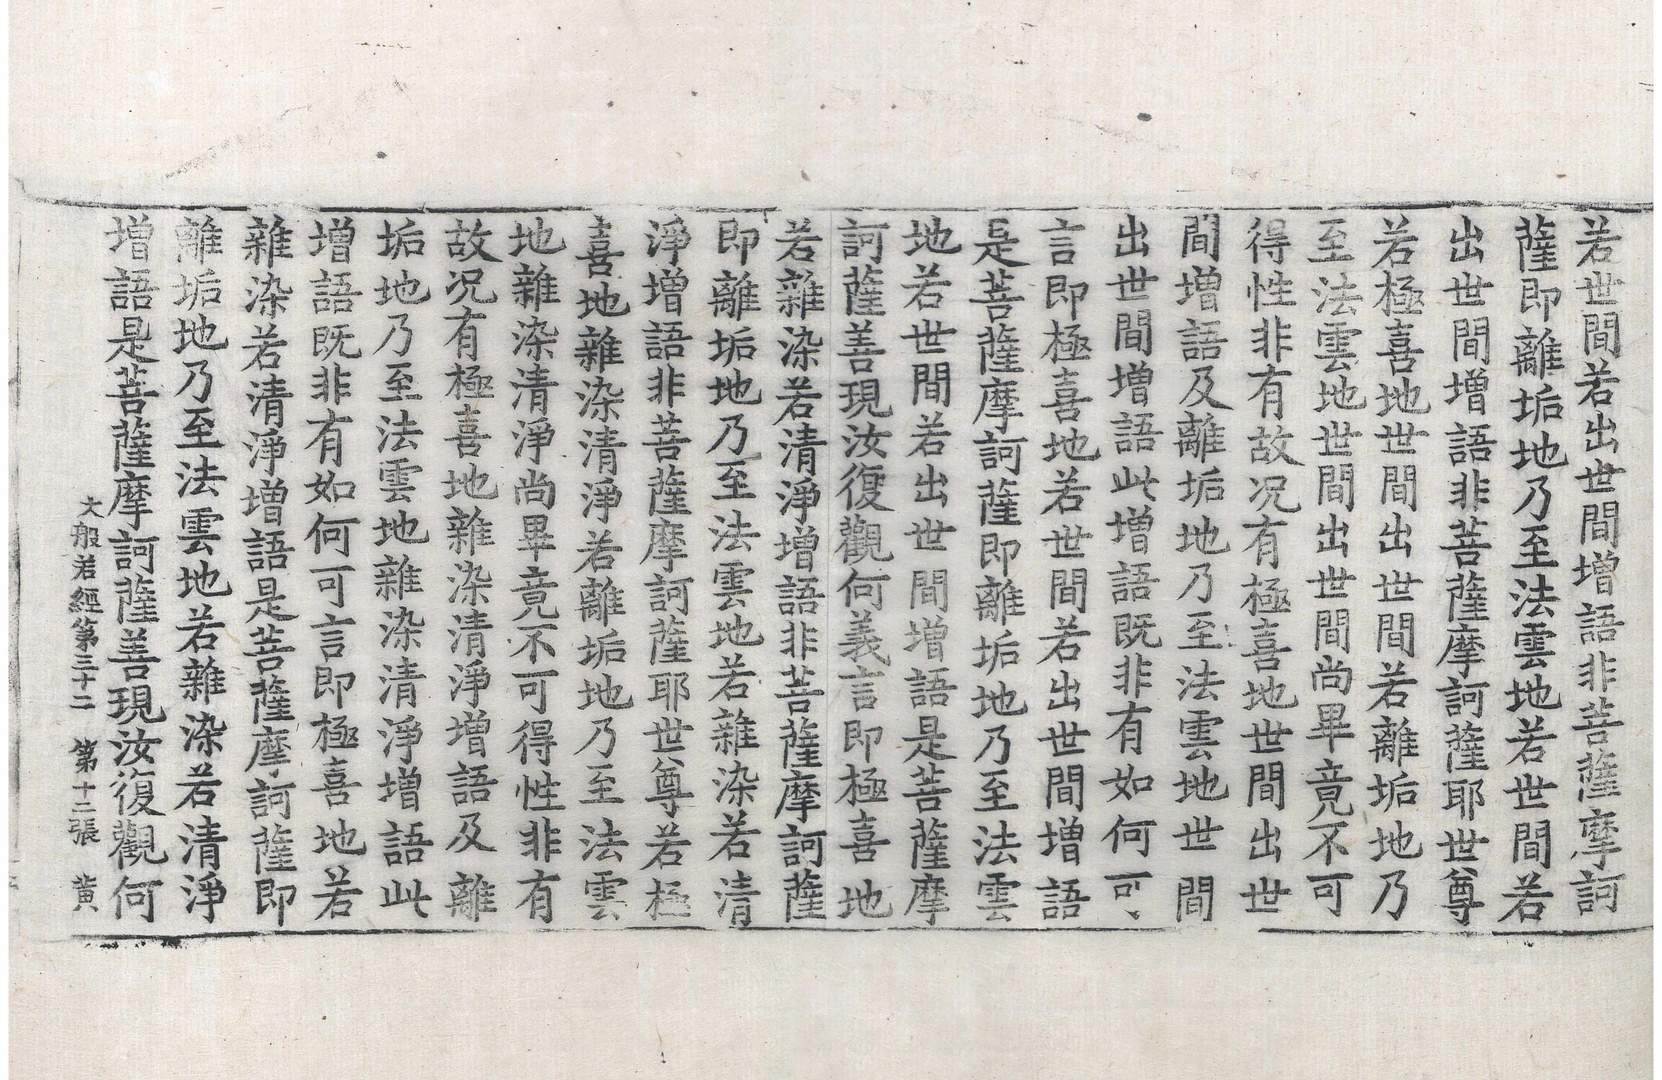 若世間若出世間增語非菩薩摩訶
薩即離垢地乃至法雲地若世間若
出世間增語非菩薩摩訶薩耶世尊
若極喜地世間出世間若離垢地乃
至法雲地世間出世間尚畢竟不可
得性非有故况有極喜地世間出世
間增語及離垢地乃至法雲地世間
出世間增語此增語既非有如何可
言即極喜地若世間若出世間增語
是菩薩摩訶薩即離垢地乃至法雲
地若世間若出世間增語是菩薩摩
訶薩善現汝復觀何義言即極喜地
若雜染若清淨增語非菩薩摩訶薩
即離垢地乃至法雲地若雜染若清
淨增語非菩薩摩訶薩耶世尊若極
喜地雜染清淨若離垢地乃至法雲
地雜染清淨尚畢竟不可得性非有
故况有極喜地雜染清淨增語及離
垢地乃至法雲地雜染清淨增語此
增語既非有如何可言即極喜地若
雜染若清淨增語是菩薩摩訶薩即
離垢地乃至法雲地若雜染若清淨
增語是菩薩摩訶薩善現汝復觀何
大般若經第三十二 第十二張 黄